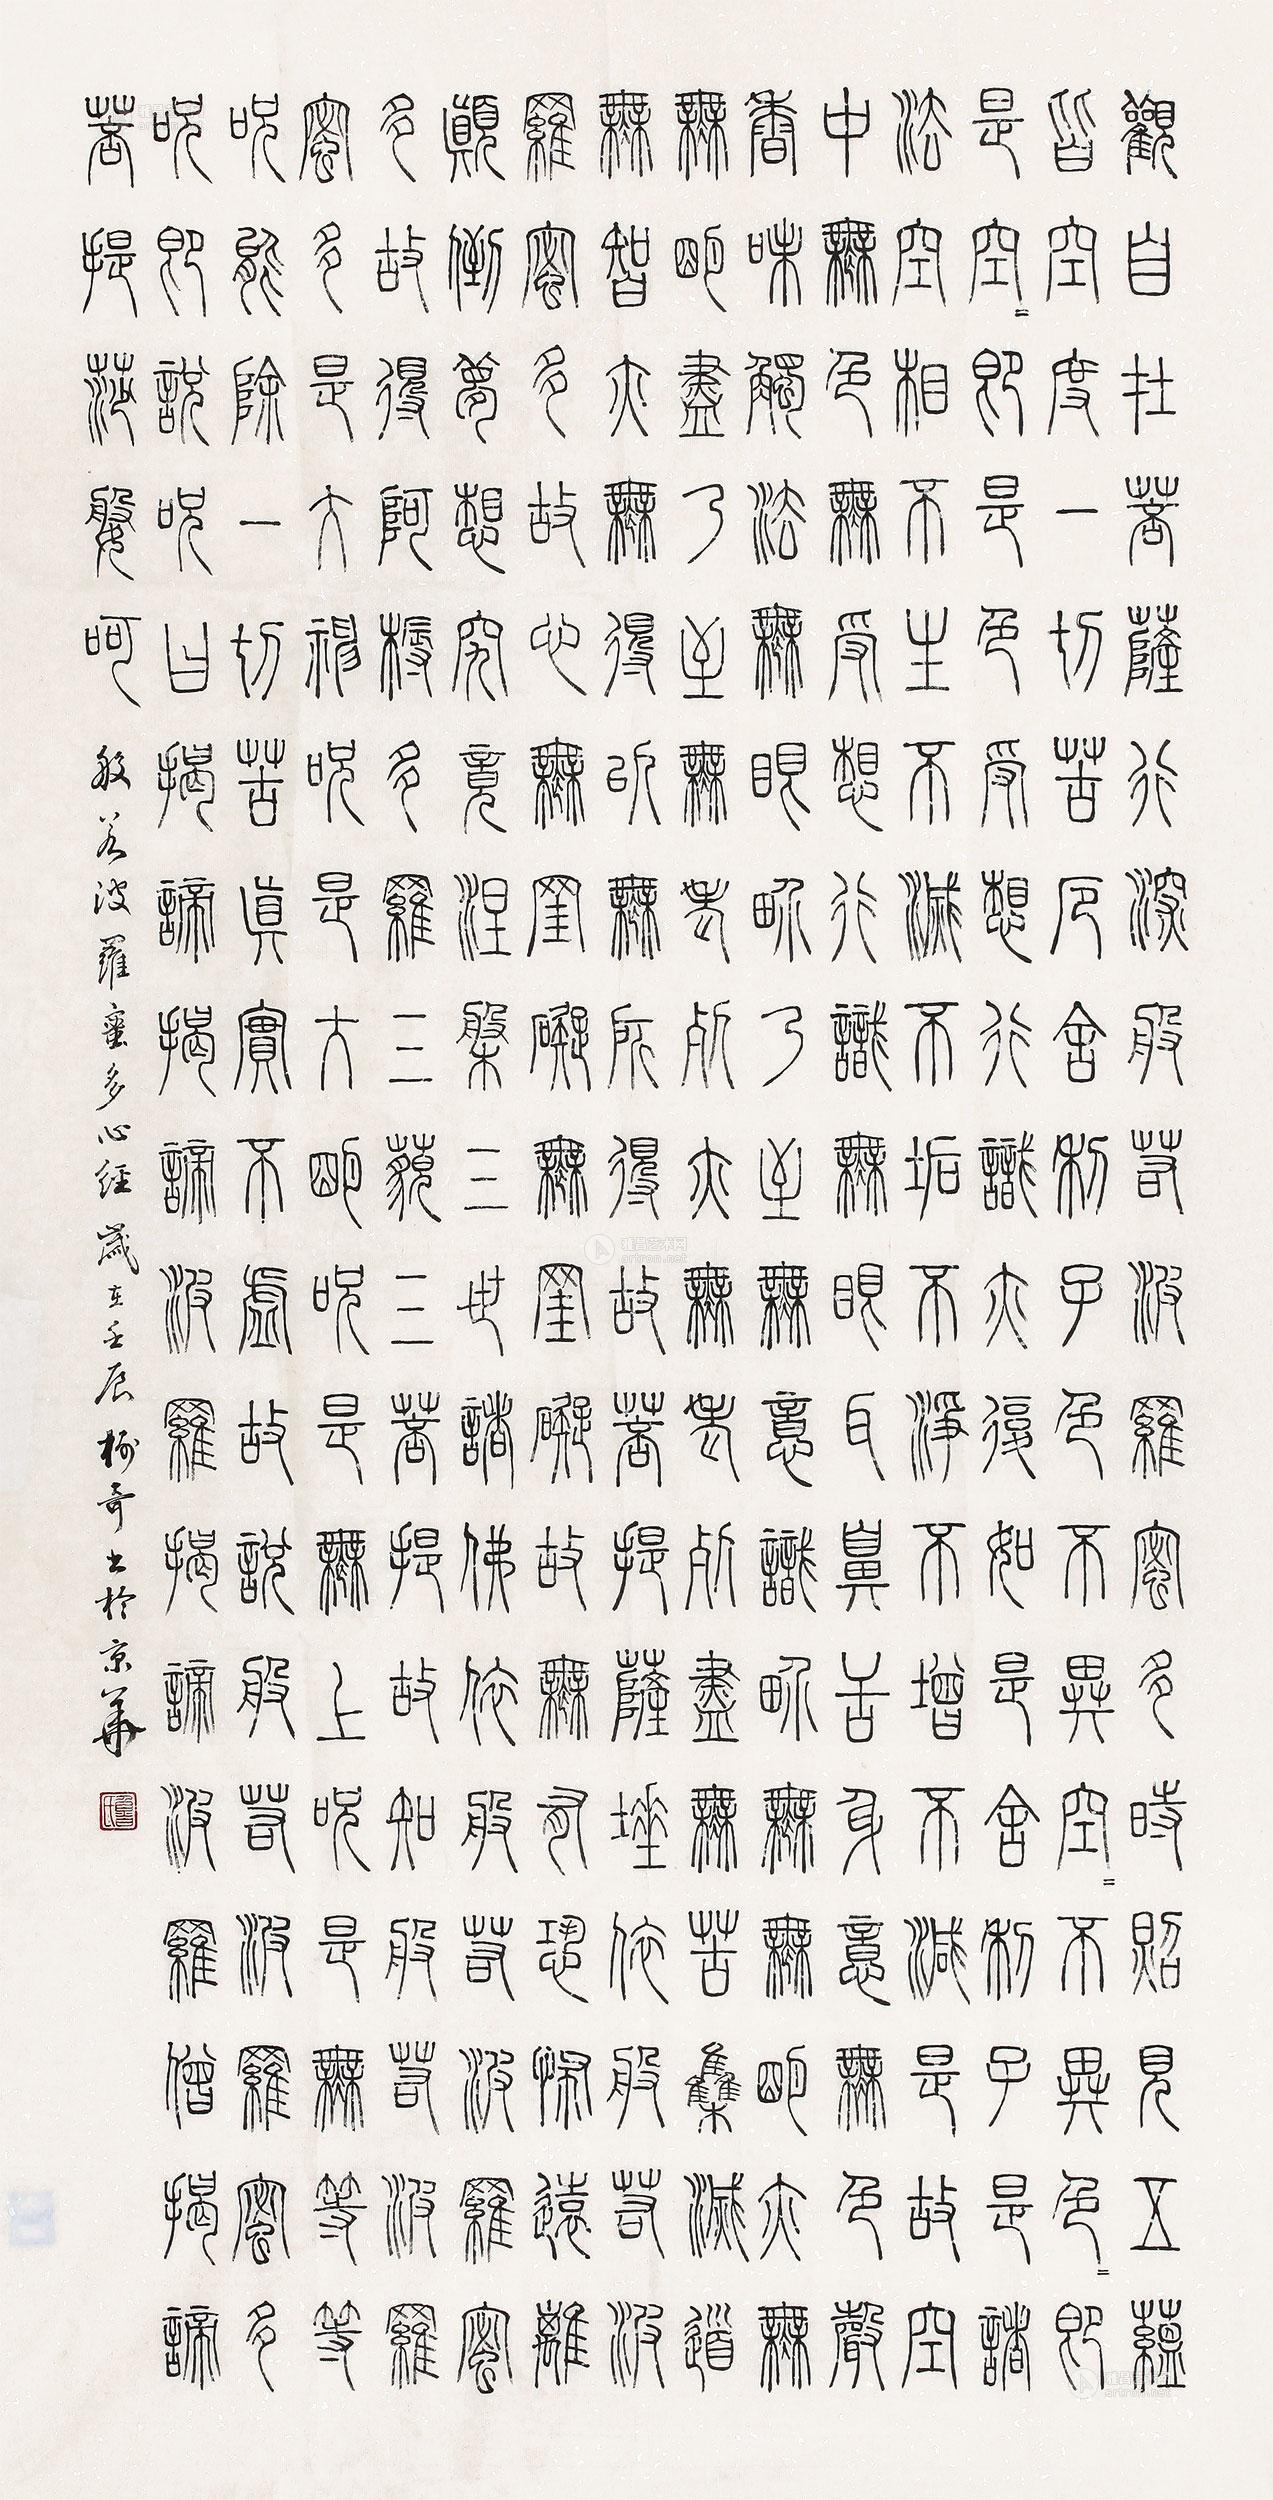 觀自在菩薩行深般若波羅蜜多時照見五蘊
皆空度一切苦厄舍利子色不異空=不異色=即
是空=即是色受想行識亦復如是舍利子是諸
法空相不生不滅不垢不淨不增不減是故空
中無色無受想行識無眼耳鼻舌身意無色聲
香味觸法無眼界乃至無意識界無無明亦無
無明盡乃至無老死亦無老死盡無苦集滅道
無智亦無得以無所得故菩提薩埵依般若波
羅蜜多故心無罣礙無罣礙故無有恐怖遠離
顛倒夢想究竟涅槃三世諸佛依般若波羅蜜
多故得阿耨多羅三藐三菩提故知般若波羅
蜜多是大神咒是大明咒是無上咒是無等等
咒能除一切苦真實不虛故說般若波羅蜜多
咒即說咒曰揭諦揭諦波羅揭諦波羅僧揭諦
菩提莎婆呵
般若波羅蜜多心經歲在壬辰奇書於京華
雅昌艺术网
artron.net